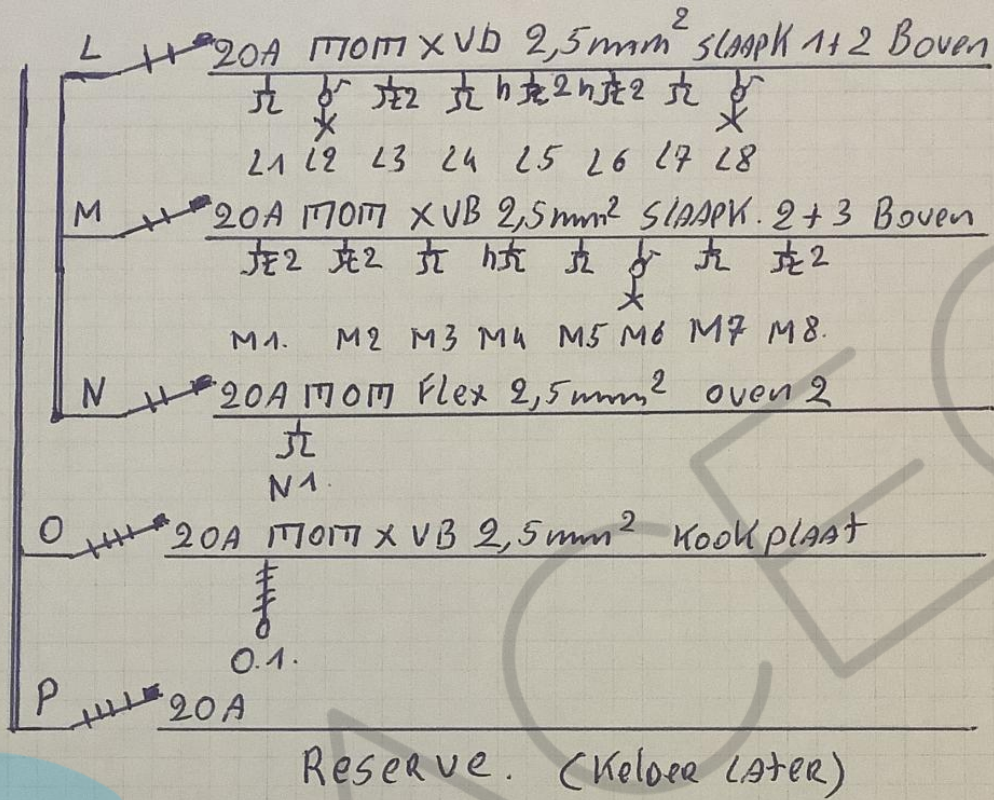 L 20A mom XVB 2,5mm² SLAAPK 1+2 Boven
2 h 2 h 2
L1 L2 L3 L4 L5 L6 L7 L8
M 20A mom XVB 2,5mm² SLAAPK. 2+3 Boven
2 2 h 2
M1. M2 M3 M4 M5 M6 M7 M8.
N 20A mom Flex 2,5mm² oven 2
N1.
O 20A mom XVB 2,5mm² KOOKPLAAT
O.1.
P 20A
Reserve. (Kelder LATER)
ACEG